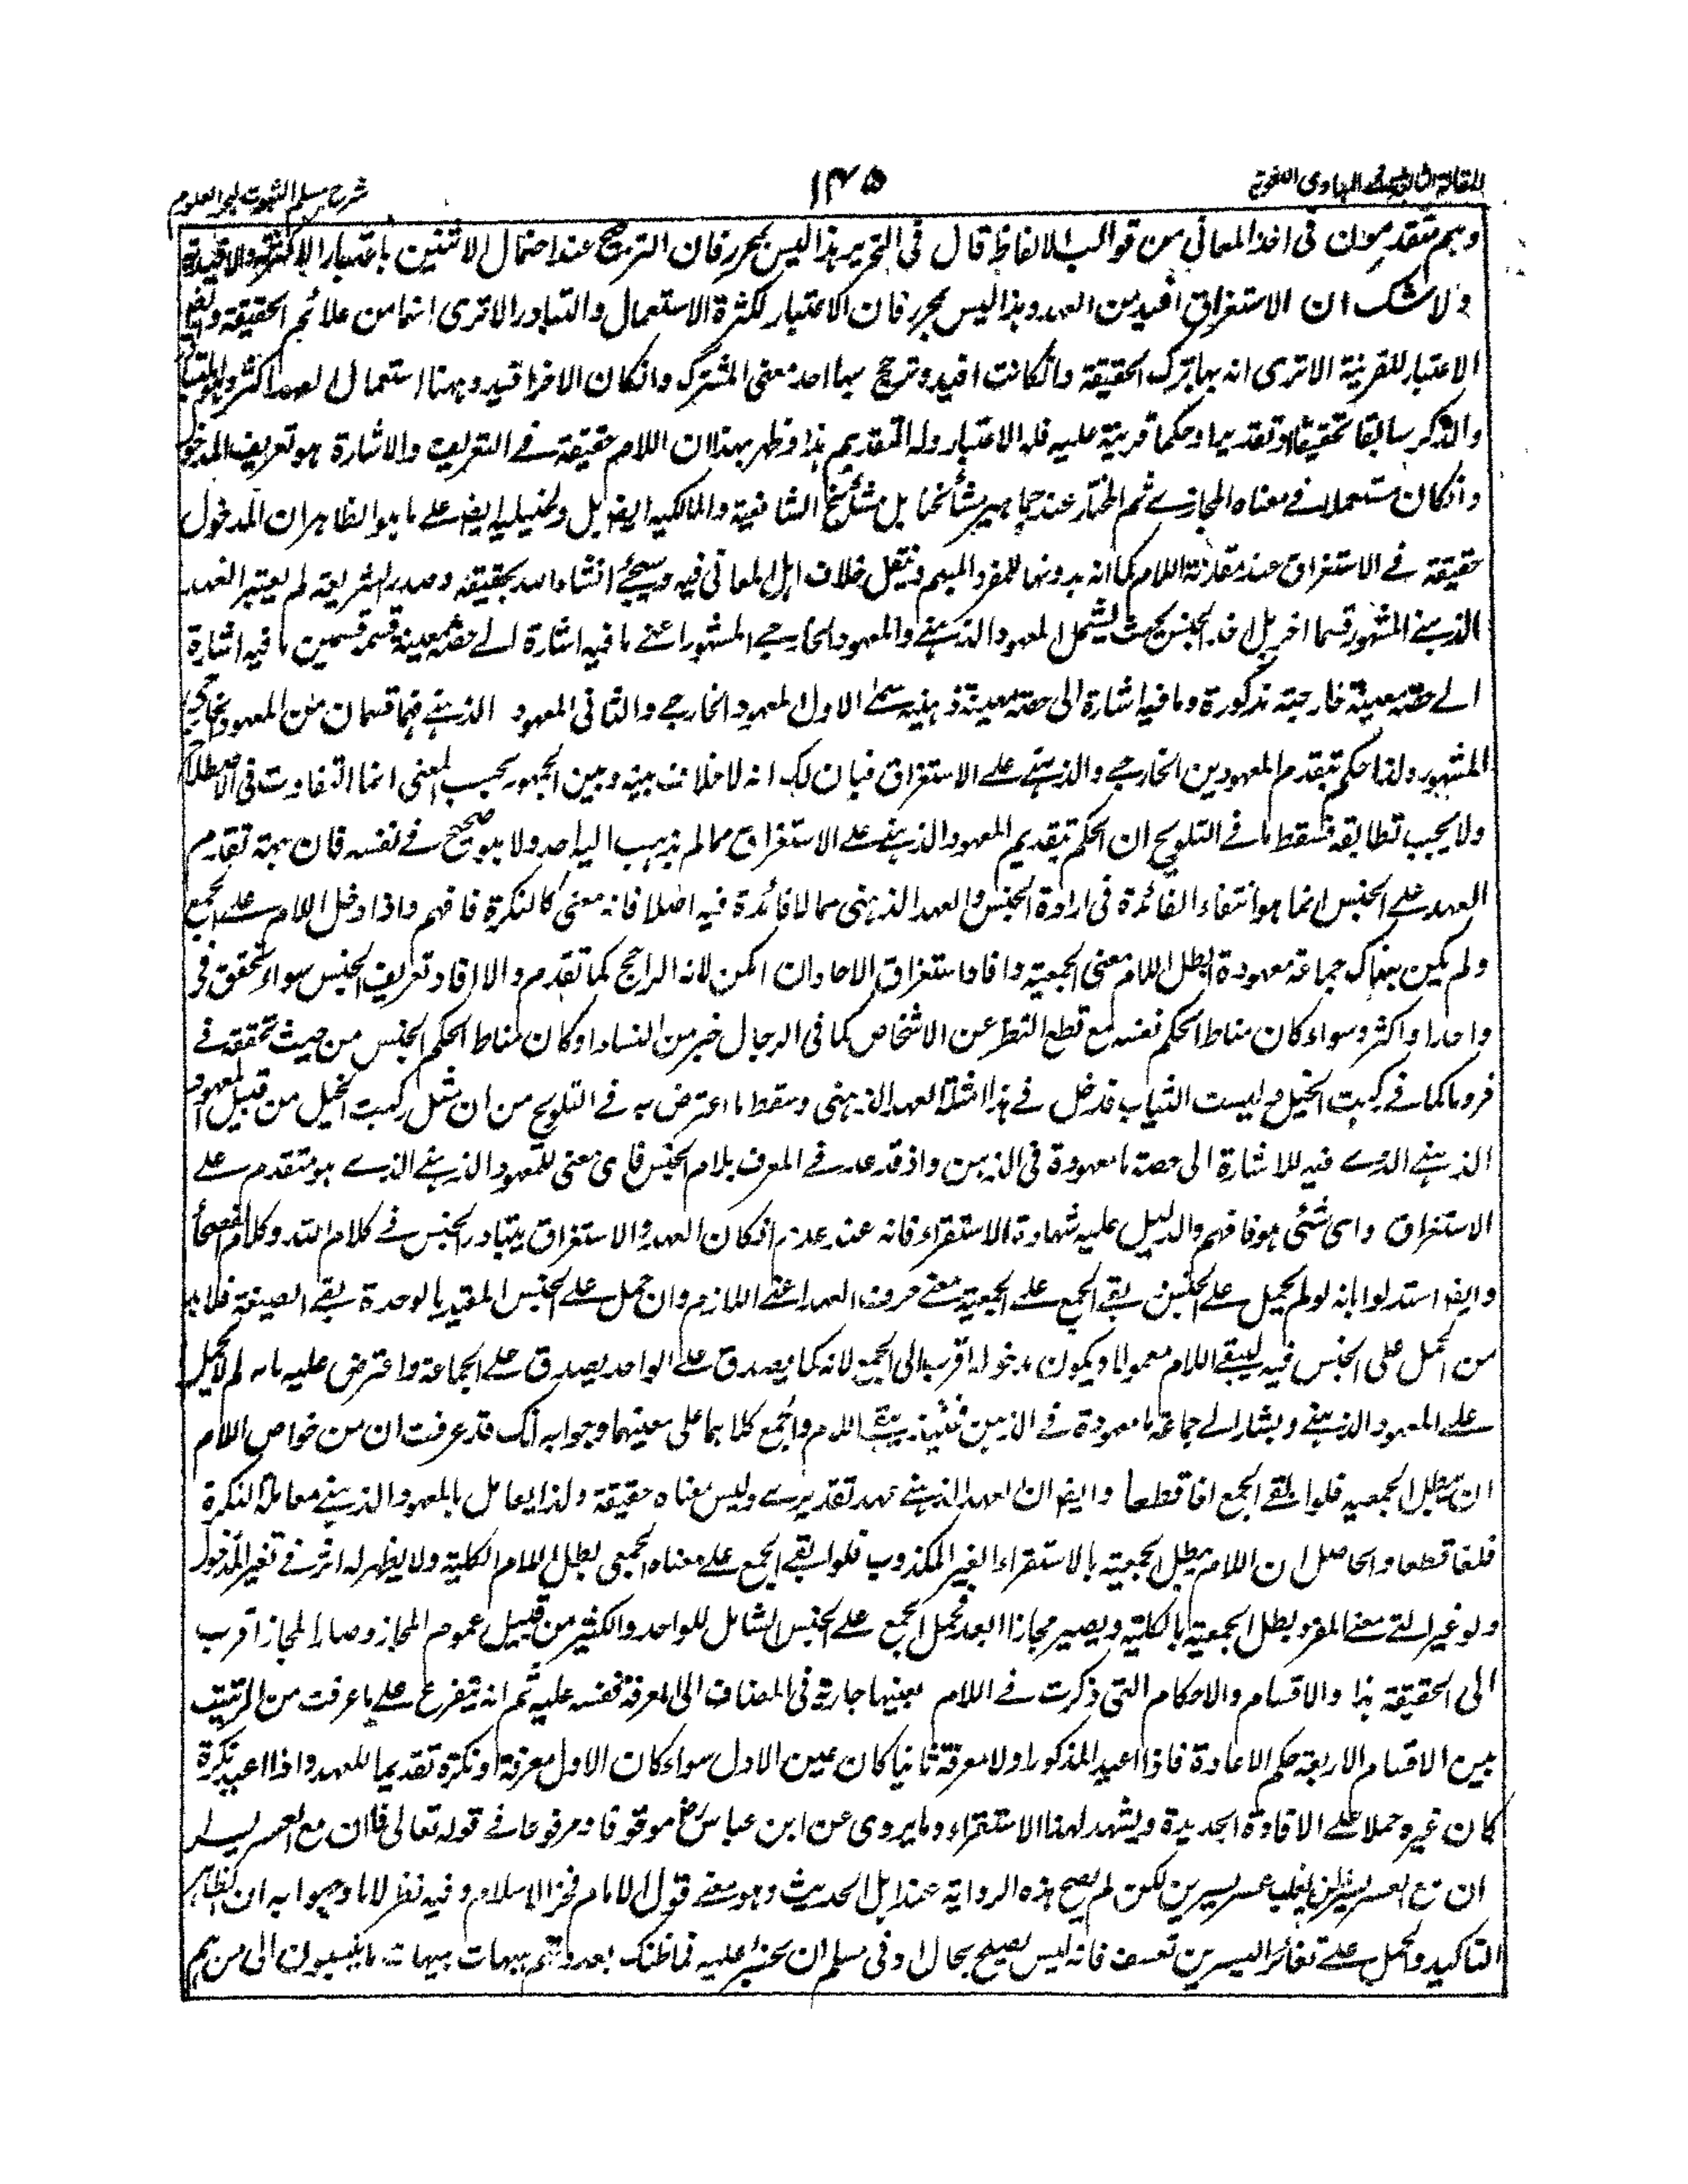 المقالة الثالثة في المبادي اللغوية
١٤٥
شرح مسلم الثبوت لبحر العلوم
وهم متقدمون في اخذ المعاني من قوالب الالفاظ قال في التحرير هذا ليس بمحرر فان الترجيح عند احتمال الاثنين باعتبار الاكثرية والافيدية
ولا شك ان الاستغراق افيد من العهد وهذا ليس بمحرر فان الاعتبار لكثرة الاستعمال والتبادر الا ترى انهما من علائم الحقيقة وايضا
الاعتبار للقرينة الا ترى انه بها يترك الحقيقة وان كانت افيد وترجح بها احد معنى المشترك وان كان الاخر افيد وههنا استعمال العهد اكثر وهو المتبادر
والذكر سابقا تحقيقا او تقديرا وحكما قرينة عليه فله الاعتبار وله التقديم هذا وظهر بهذا ان اللام حقيقة في التعريف والاشارة هو تعريف المدخول
وان كان مستعملا في معناه المجازي ثم المختار عند جماهير مشائخنا بل مشائخ الشافعية والمالكية ايضا بل والحنبلية ايضا على ما هو الظاهر ان المدخول
حقيقة في الاستغراق عند مقارنة اللام كما انه بدونها للفرد المبهم ونقل خلاف اهل المعاني فيه وسيجئ انشاء الله تحقيقه وصدر الشريعة لم يعتبر العهد
الذهني المشهور قسما اخر بل اخذ الجنس بحيث يشمل المعهود الذهني والمعهود الخارجي المشهور اعني ما فيه اشارة الى حصة معينة قسمه قسمين ما فيه اشارة
الى حصة معينة خارجية مذكورة وما فيه اشارة الى حصة معينة ذهنية سمى الاول المعهود الخارجي والثاني المعهود الذهني فهما قسمان من المعهود الخارجي
المشهور ولذا حكم بتقدم المعهودين الخارجي والذهني على الاستغراق فبان لك انه لا خلاف بينه وبين الجمهور بحسب المعنى انما التفاوت في الاصطلاح
ولا يجب تطابقه فسقط ما في التلويح ان الحكم بتقديم المعهود الذهني على الاستغراق مما لم يذهب اليه احد ولا هو صحيح في نفسه فان جهة تقدم
العهد على الجنس انما هو انتفاء الفائدة في ارادة الجنس والعهد الذهني مما لا فائدة فيه اصلا فانه معنى كالنكرة فافهم واذا دخل اللام على الجمع
ولم يكن هناك جماعة معهودة ابطل اللام معنى الجمعية وافاد استغراق الاحاد ان امكن لانه الراجح كما تقدم والا افاد تعريف الجنس سواء تحقق في
واحد او اكثر وسواء كان مناط الحكم نفسه مع قطع النظر عن الاشخاص كما في الرجال خير من النساء او كان مناط الحكم الجنس من حيث تحققه في
فرد ما كما في ركبت الخيل ولبست الثياب فدخل في هذا امثلة العهد الذهني وسقط ما اعترض به في التلويح من ان مثل ركبت الخيل من قبيل المعهود
الذهني الذي فيه للاشارة الى حصة ما معهودة في الذهن واذ قد عد في المعرف بلام الجنس فاي معنى للمعهود الذهني الذي هو متقدم على
الاستغراق واي شئ هو فافهم والدليل عليه شهادة الاستقراء فانه عند عدم امكان العهد والاستغراق يتبادر الجنس في كلام الله وكلام الفصحاء
وايضا استدلوا بانه لو لم يحمل على الجنس بقي الجمع على الجمعية معنى حرف العهد اعني اللازم وان حمل على الجنس المقيد بالوحدة بقي الصيغة فلا بد
من الحمل على الجنس فيه ليبقي اللام معمولا ويكون مدخوله اقرب الى الجمع لانه كما يصدق على الواحد يصدق على الجماعة واعترض عليه بانه لم لا يحمل
على المعهود الذهني ويشار الى جماعة ما معهودة في الذهن فحينئذ يبقى اللام والجمع كلاهما على معنيهما وجوابه انك قد عرفت ان من خواص اللام
ان يبطل الجمعية فلو ابقي الجمع لغا قطعا وايضا ان العهد الذهني عهد تقديري وليس معناه حقيقة ولذا يعامل بالمعهود الذهني معاملة النكرة
فلغا قطعا والحاصل ان اللام يبطل الجمعية بالاستقراء الغير المكذوب فلو ابقي الجمع على معناه الجمعي بطل اللام الكلية ولا يظهر له اثر في تغير المدخول
ولو غير الى معنى المفرد بطل الجمعية بالكلية ويصير مجازا ابعد فحمل الجمع على الجنس الشامل للواحد والكثير من قبيل عموم المجاز وصار المجاز اقرب
الى الحقيقة هذا والاقسام والاحكام التي ذكرت في اللام بعينها جارية في المضاف الى المعرفة فقسه عليه ثم انه يتفرع على ما عرفت من الترتيب
بين الاقسام الاربعة حكم الاعادة فاذا اعيد المذكور اولا معرفة ثانيا كان عين الاول سواء كان الاول معرفة او نكرة تقديما للعهد واذا اعيد نكرة
كان غيره حملا على الافادة الجديدة ويشهد لهذا الاستقراء وما يروى عن ابن عباس موقوفا ومرفوعا في قوله تعالى فان مع العسر يسرا
ان مع العسر يسرا لن يغلب عسر يسرين لكن لم يصح هذه الرواية عند اهل الحديث وهو معنى قول الامام فخر الاسلام وفيه نظر لا ما وجهوا به ان الظاهر
التاكيد وحمل على تغائر اليسرين تعسف فانه ليس يصلح بحال ادنى مسلم ان يجترأ عليه فما ظنك بعدوهم هيهات هيهات ما ينسبون الى من هم